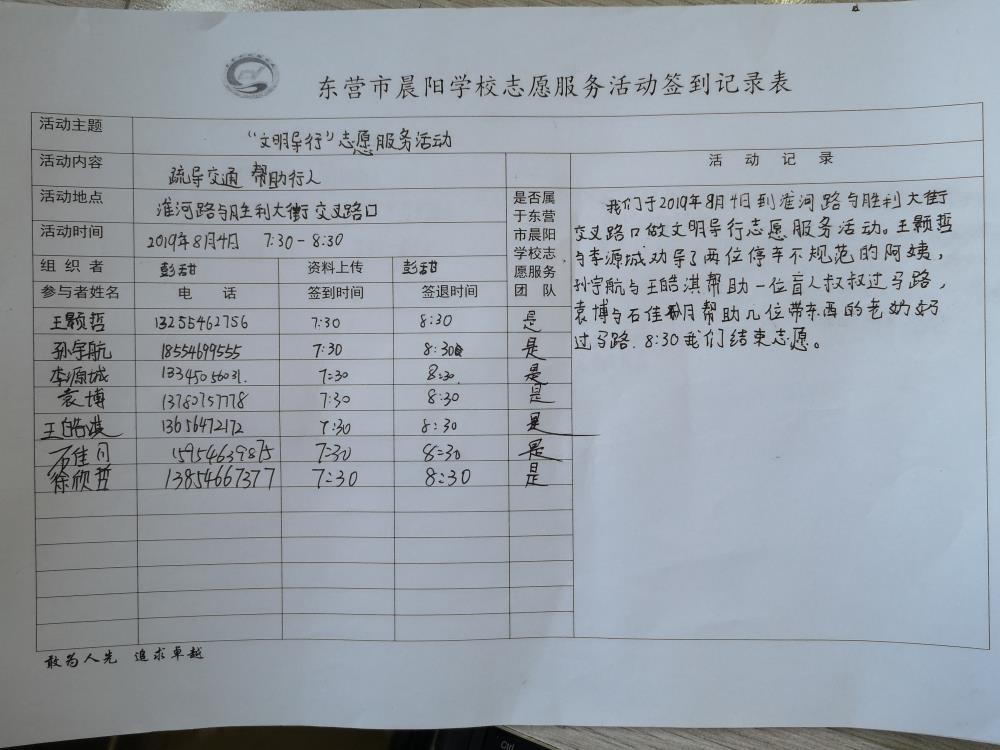 东营市晨阳学校志愿服务活动签到记录表
活动主题 “文明导行”志愿服务活动
活动内容 疏导交通 帮助行人
活动地点 淮河路与胜利大街交叉路口
活动时间 2019年8月4日 7:30-8:30
组织者 彭甜 资料上传 彭甜
参与者姓名 电话 签到时间 签退时间
是否属
于东营
市晨阳
学校志
愿服务
团队
王颢哲 13255462756 7:30 8:30 是
孙宇航 18554699555 7:30 8:30 是
李源城 13345056031. 7:30 8:30. 是
袁博 13780757778 7:30 8:30 是
王皓淇 13656472172 7:30 8:30 是
石佳 15954639875 7:30 8:30 是
徐欣哲 13854667377 7:30 8:30 是
活动记录
我们于2019年8月4日到淮河路与胜利大街
交叉路口做文明导行志愿服务活动。王颢哲
与李源城劝导了两位停车不规范的阿姨，
孙宇航与王皓淇帮助一位盲人叔叔过马路，
袁博与石佳 帮助几位带东西的老奶奶
过马路. 8:30我们结束志愿。
敢为人先 追求卓越
Ctrl